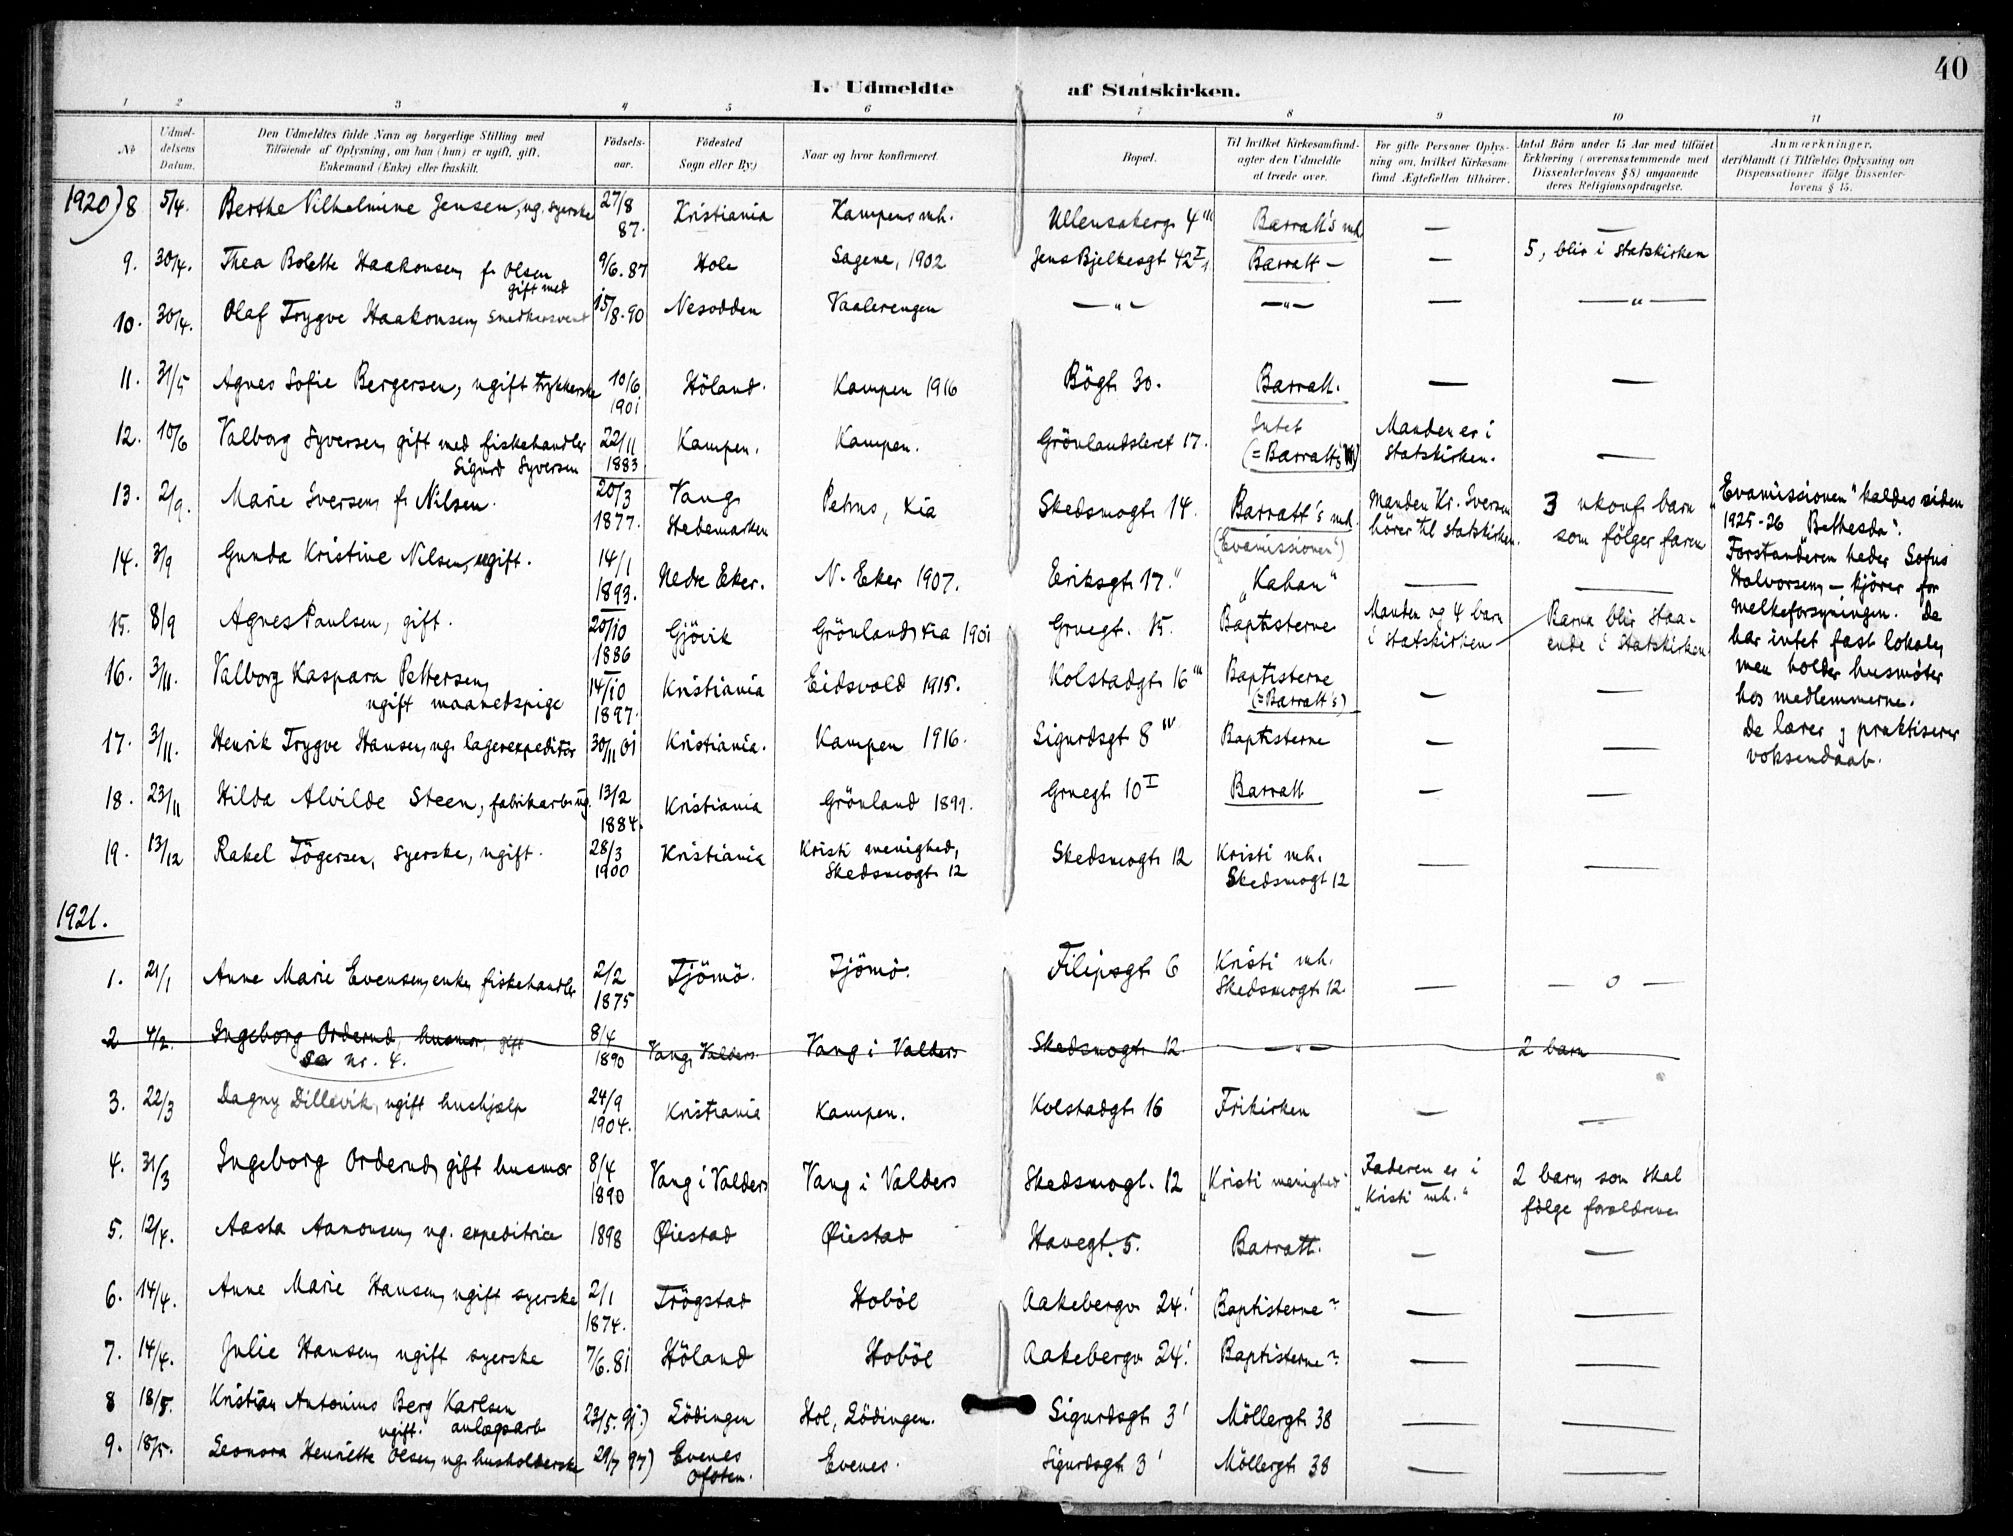 40
I. Udmeldte af Statskirken.
1 2 3 4 5 6 7 8 9 10 11
No
Udmeldelsens Datum.
Den Udmeldtes fulde Navn og borgerlige Stilling med
Tilføiende af Oplysning, om han (hun) er ugift, gift,
Enkemand (Enke) eller fraskilt.
Fødselsaar.
Fødested
Sogn eller By.)
Naar og hvor konfirmeret.
Bopæl.
Til hvilket Kirkesamfund
agter den Udmeldte
at træde over.
For gifte Personer Oplysning om, hvilket Kirkesamfund Ægtefællen tilhører.
Antal Børn under 15 Aar med tilføiet
Erklæring (overensstemmende med
Dissenterlovens § 8) angaaende
deres Religionsopdragelse.
Anmærkninger,
deriblandt (i Tilfælde) Oplysning om
Dispensationer ifølge Dissenterlovens § 15.
1920) 8 5/4. Berthe Vilhelmine Jensen, ug. syerske 27/8 87. Kristiania Kampens mh. Ullensakerg. 4''' Barratt's mh. — —
9. 30/4. Thea Bolette Haakonsen, f. Olsen gift med 9/6. 87 Hole Sagene, 1902 Jens Bjelkesgt 42 I, Barratt — — 5, blir i Statskirken
10. 30/4. Olaf Trygve Haakonsen, snedkersvend 15/8. 90 Nesodden Vaalerengen —"— —"— — —"—
11. 31/5 Agnes Sofie Bergersen, ugift trykkerske 10/6 1901 Höland. Kampen 1916 Bögt. 30. Barratt. — —
12. 10/6 Valborg Syversen, gift med fiskehandler Sigurd Syversen 22/11 1883 Kampen. Kampen. Grönlandsleret 17. Intet (=Barratts M) Manden er i Statskirken. —
13. 2/9. Marie Iversen, f. Nilsen. 20/3 1877. Vang, Hedemarken Petrus, Kia Skedsmogt. 14. Barratt's mh. ("Evamissionen") Manden Kr. Iversen hörer til Statskirken. 3 ukonf. barn som fölger faren
"Evamissionen" kaldes siden
1925-26 "Bethesda".
Forstanderen heder Sofus
Halvorsen, — kjører for
melkeforsyningen. De
har intet fast lokale,
men holder husmøter
hos medlemmerne.
De lærer og praktiserer
voksendaab.
14. 3/9 Gunda Kristine Nilsen, ugift. 14/1 1893. Nedre Eker. N. Eker 1907. Eriksgt. 17." "Kahan" — —
15. 8/9 Agnes Paulsen, gift. 20/10 1886 Gjövik Grönland, Kia 1901 Gruegt. 15. Baptisterne Manden og 4 barn i Statskirken Barna blir staaende i Statskirken.
16. 3/11. Valborg Kaspara Pettersen, ugift maanedspige 14/10 1897. Kristiania Eidsvold 1915. Kolstadgt. 16''' Baptisterne (=Barratt's) — —
17. 3/11. Henrik Trygve Hansen, ug. lagerexpeditör 30/11 01 Kristiania. Kampen 1916. Sigurdsgt 8 IV Baptisterne — —
18. 23/11 Hilda Alvilde Steen, fabrikarb. ug. 13/2 1884. Kristiania Grönland 1899. Gruegt. 10 I Barratt — —
19. 13/12 Rakel Tögersen, syerske, ugift. 28/3 1900 Kristiania Kristi menighed, Skedsmogt. 12 Skedsmogt. 12 Kristi mh. Skedsmogt 12 — —
1921.
1. 21/1 Anne Marie Evensen, enke, fiskehandler 2/2 1875 Tjömö. Tjömö. Filipsgt. 6 Kristi mh. Skedsmogt 12. — — 0 —
2 4/2. Ingeborg Orderud, husmor, gift 8/4 1890 Vang, Valders. Vang i Valders Skedsmogt. 12. —"— 2 barn
Se nr. 4.
3. 22/3 Dagny Dillevik, ugift hushjælp 24/9 1904. Kristiania Kampen. Kolstadgt. 16 Frikirken — —
4. 31/3 Ingeborg Orderud, gift husmor 8/4 1890 Vang i Valders Vang i Valders Skedsmogt. 12 "Kristi menighed" Faderen er i "Kristi mh." 2 barn, som skal fölge forældrene
5. 12/4. Aasta Aamonsen, ug. expeditrice 1898 Øiestad Øiestad Havegt. 5. Barratt. — —
6. 14/4. Anne Marie Hansen, ugift syerske 2/1 1874. Trögstad Hobøl Aakebergv. 24.' Baptisterne? — —
7. 14/4. Julie Hansen, ugift syerske 7/6. 81 Höland Hobøl Aakebergv. 24.' Baptisterne? — —
8 18/5. Kristian Antonius Berg Karlsen ugift. anlægsarb. 23/5. 91.) Lödingen Hol, Lödingen. Sigurdsgt. 3' Möllergt. 38 — —
9. 18/5. Leonora Henriette Olsen, ug. husholderske 29/7 97) Evenes Ofoten. Evenes. Sigurdsgt. 3' Möllergt. 38 — —